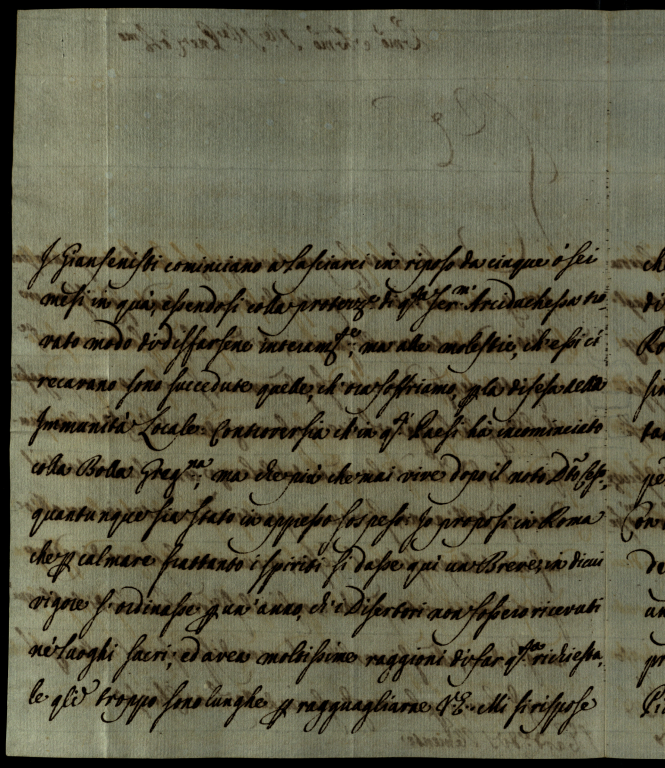 I Giansenisti cominciano a lasciarci in riposo da cinque ó sei
mesi in quà, essendosi colla protenz.e di q.ta Ser.ma Arciduchessa tro
vato modo di disfarsene interam.te; ma alle molestie, ch'essi ci
recavano sono succedute quelle, ch'ora soffriamo, p la difesa della
Immunità Locale. Controversia ch'in q.i Paesi hà incominciato
colla Bolla Greg.na; ma che più che mai vive dopo il noto
quantunque sia stato in appresso sospeso. Io proposi in Roma
che p calmare frattanto i spiriti si dasse qui un Breve, in di cui
vigore s'ordinasse p un'anno, ch'i Disertori non fossero ricevuti
né luoghi sacri; ed avea moltissime raggioni di far q.ta richiesta,
le q.li troppo sono lunghe p ragguagliarne V.E. Mi si rispose